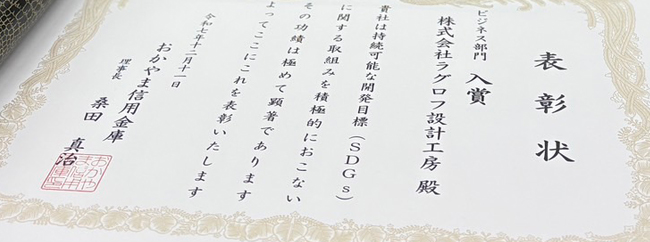 表彰状
ビジネス部門 入賞
株式会社ラグロフ設計工房 殿
貴社は持続可能な開発目標(SDGs)
に関する取組みを積極的におこない
その功績は極めて顕著であります
よってここにこれを表彰いたします
令和七年十二月十一日
おかやま信用金庫
理事長 桑田 真治